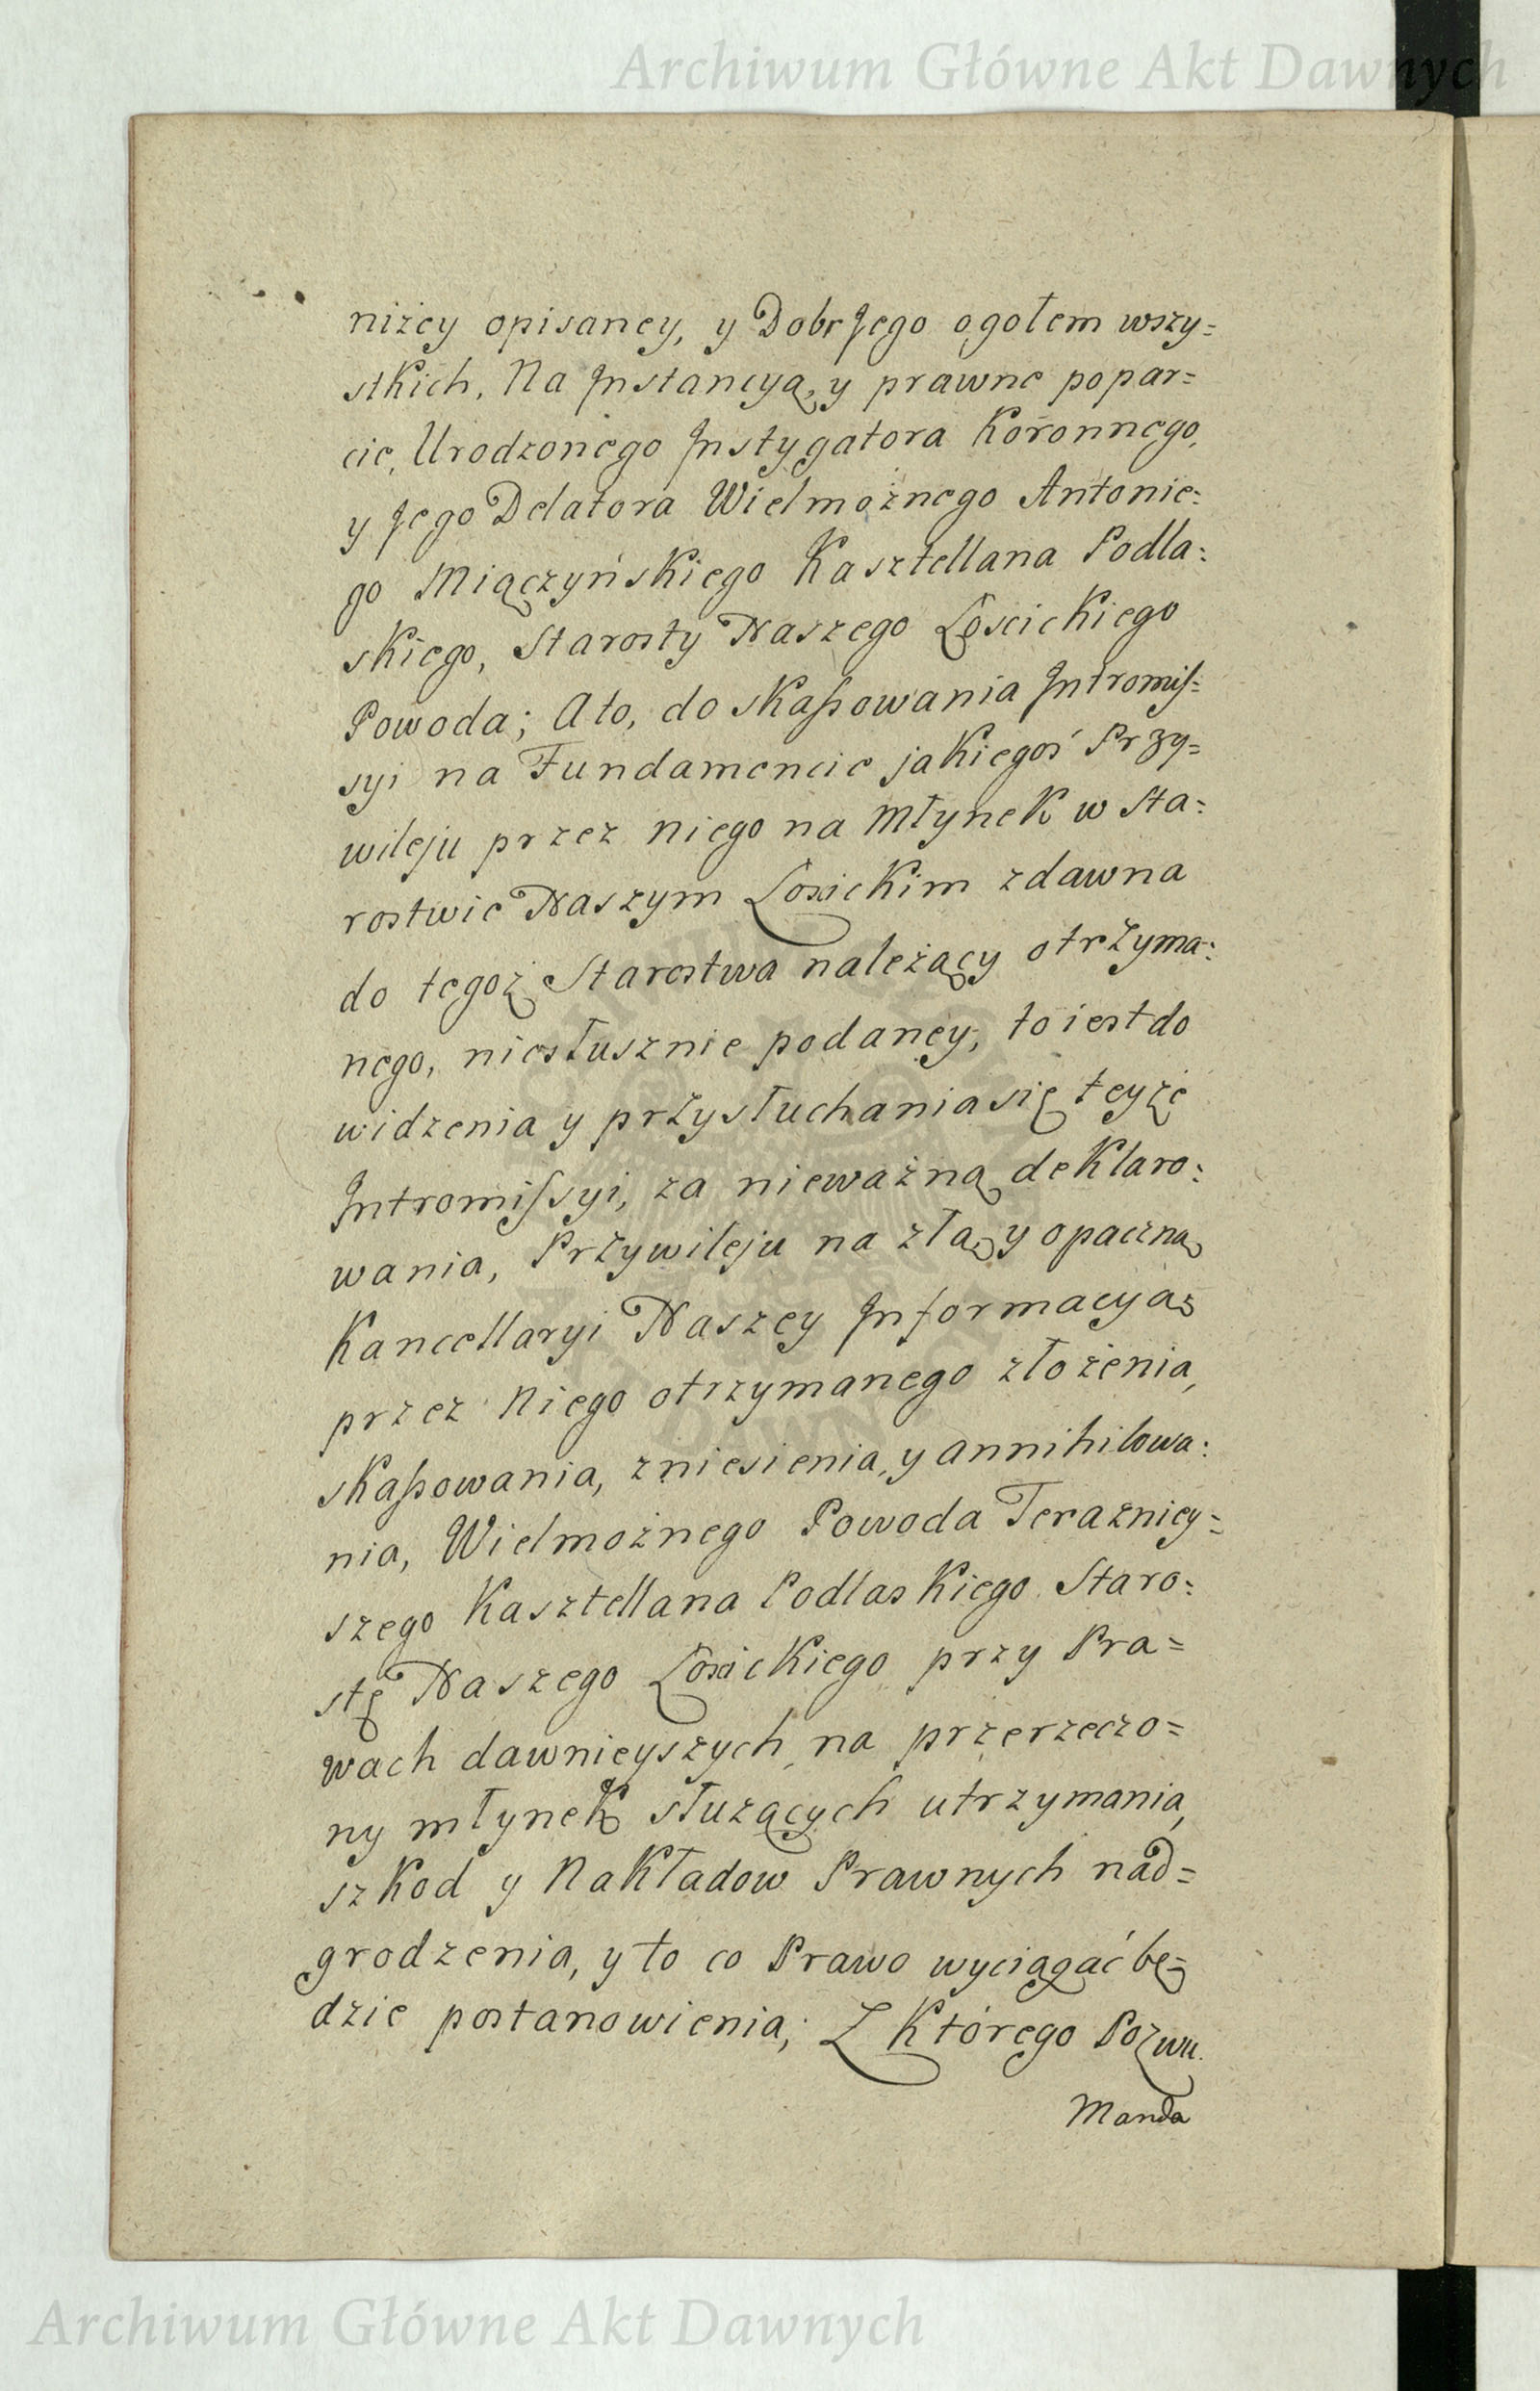 Archiwum Główne Akt Dawnych
niżey opisaney, y Dobr Jego ogołem wszy=
stkich, Na Instancyą, y prawne popar=
cie, Urodzonego Instygatora Koronnego,
y Jego Delatora Wielmożnego Antonie=
go Miączyńskiego Kasztellana Podla=
skiego, Starosty Naszego Łoscickiego
Powoda; A to, do skassowania Intromis=
syi na Fundamencie jakiegoś Przy=
wileju przez niego na Młynek w Sta=
rostwie Naszym Łosickim zdawna
do tegoż Starostwa należący otrzyma=
nego, niesłusznie podaney, to iest do
widzenia y przysłuchania się teyże
Intromissyi, za nieważną deklaro=
wania, Przywileju na złą y opaczną
Kancellaryi Naszey Informacyą
przez Niego otrzymanego złożenia,
skassowania, zniesienia, y annihilowa=
nia, Wielmożnego Powoda Terazniey=
szego Kasztellana Podlaskiego Staro=
stę Naszego Łosickiego przy Pra=
wach dawnieyszych na przerzeczo=
ny młynek służących utrzymania,
szkod y Nakładow Prawnych nad=
grodzenia, y to co Prawo wyciągać bę=
dzie postanowienia; Z którego Pozwu
Manda
Archiwum Główne Akt Dawnych